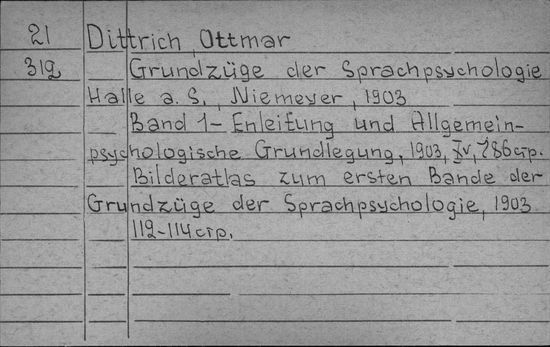 21 Dittrich Ottmar
312 Grundzüge der Sprachpsychologie
Halle a. S., Niemeyer, 1903
Band 1- Enleitung und Allgemein-
psychologische Grundlegung, 1903, XV, 786 стр.
Bilderatlas zum ersten Bande der
Grundzüge der Sprachpsychologie, 1903
112-114 стр.